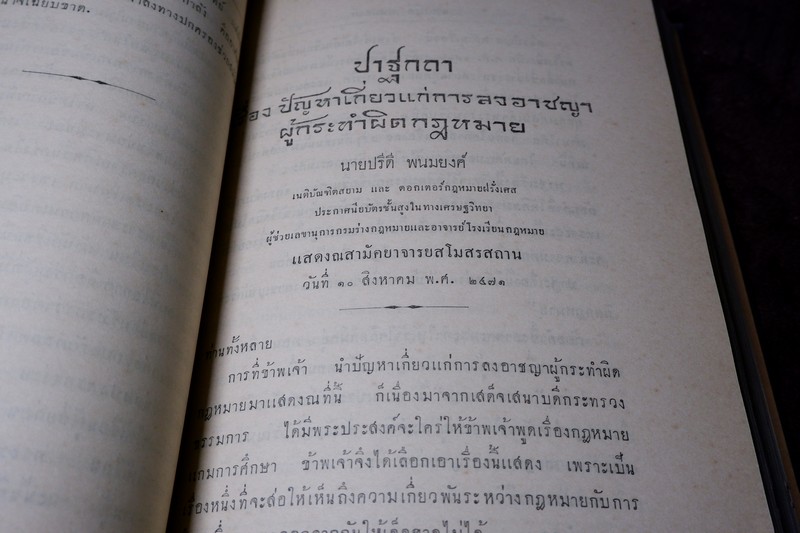 ปาฐกถา
เรื่อง ปัญหาเกี่ยวแก่การลงอาชญา
ผู้กระทำผิดกฎหมาย
นายปรีดี พนมยงค์
เนติบัณฑิตสยาม และ ดอกเตอร์กฎหมายฝรั่งเศส
ประกาศนียบัตรชั้นสูงในทางเศรษฐวิทยา
ผู้ช่วยเลขานุการกรมร่างกฎหมายและอาจารย์โรงเรียนกฎหมาย
แสดงณสามัคยาจารยสโมสรสถาน
วันที่ ๑๐ สิงหาคม พ.ศ. ๒๔๗๑
ท่านทั้งหลาย
การที่ข้าพเจ้า นำปัญหาเกี่ยวแก่การลงอาชญาผู้กระทำผิด
กฎหมายมาแสดงณที่นี้ ก็เนื่องมาจากเสด็จเสนาบดีกระทรวง
ธรรมการ ได้มีพระประสงค์จะใคร่ให้ข้าพเจ้าพูดเรื่องกฎหมาย
แกมการศึกษา ข้าพเจ้าจึงได้เลือกเอาเรื่องนี้แสดง เพราะเป็น
เรื่องหนึ่งที่จะส่อให้เห็นถึงความเกี่ยวพันระหว่างกฎหมายกับการ